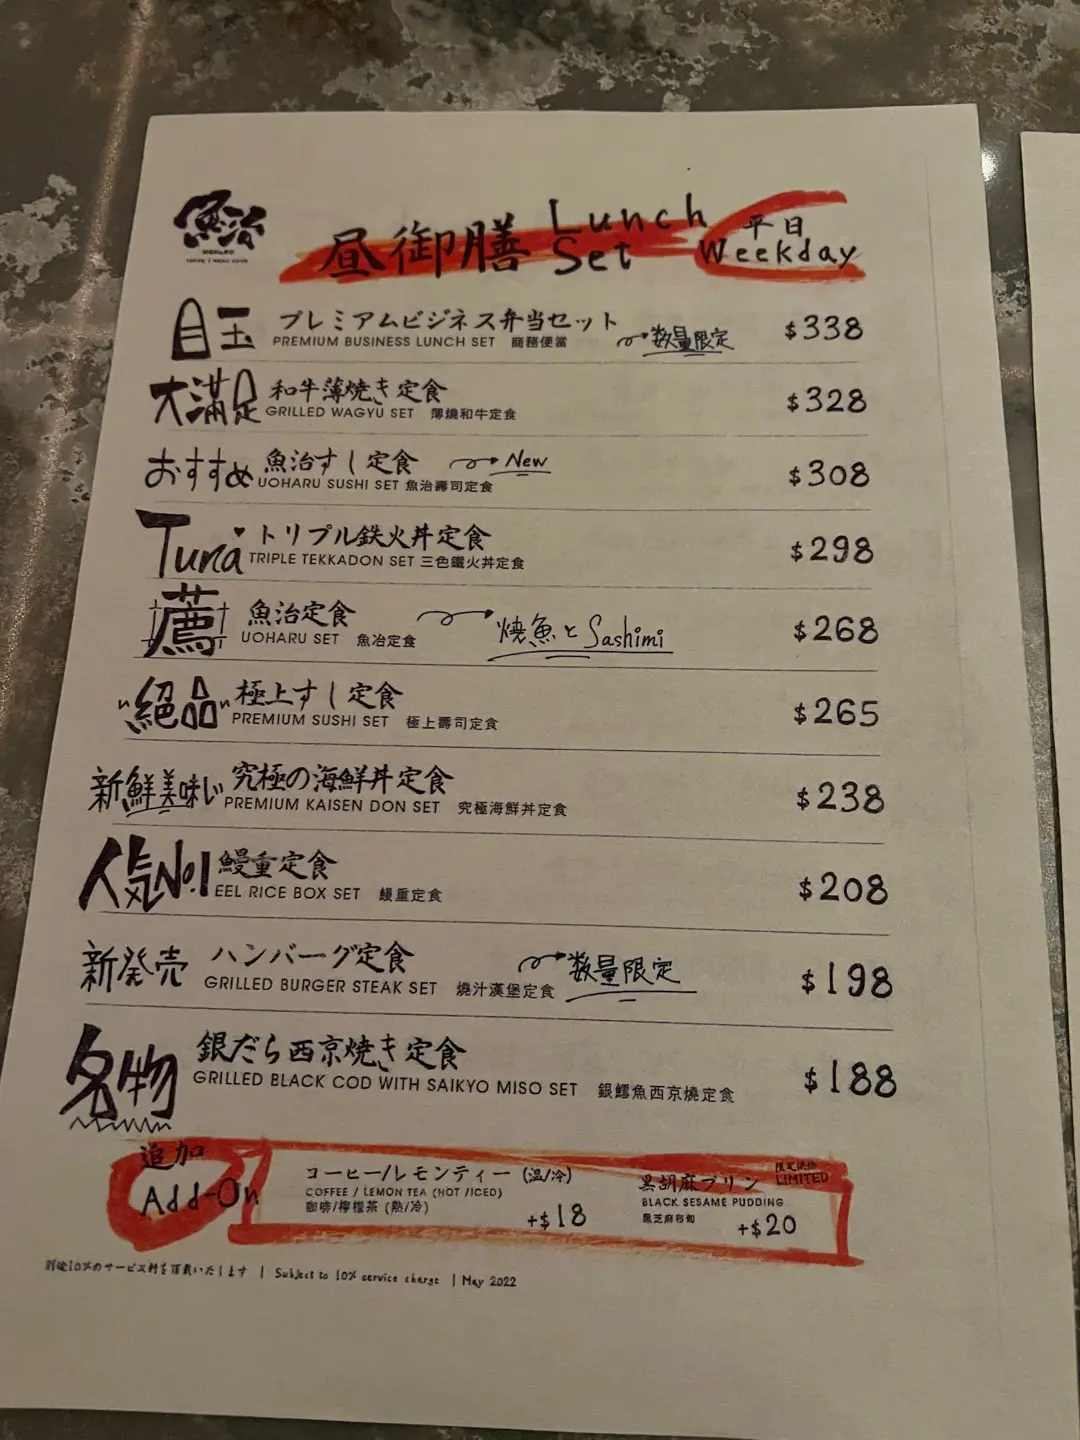 魚治
UOHARU
昼御膳 Lunch Set 平日 Weekday
目玉 プレミアムビジネス弁当セット
PREMIUM BUSINESS LUNCH SET 商務便當 数量限定 $338
大満足 和牛薄焼き定食
GRILLED WAGYU SET 薄燒和牛定食 $328
おすすめ 魚治すし定食 New
UOHARU SUSHI SET 魚治壽司定食 $308
Tuna トリプル鉄火丼定食
TRIPLE TEKKADON SET 三色鐵火丼定食 $298
薦 魚治定食 焼魚と Sashimi
UOHARU SET 魚治定食 $268
"絕品" 極上すし定食
PREMIUM SUSHI SET 極上壽司定食 $265
新鮮美味じ 究極の海鮮丼定食
PREMIUM KAISEN DON SET 究極海鮮丼定食 $238
人気No.1 鰻重定食
EEL RICE BOX SET 鰻重定食 $208
新発売 ハンバーグ定食 数量限定
GRILLED BURGER STEAK SET 燒汁漢堡定食 $198
名物 銀だら西京焼き定食
GRILLED BLACK COD WITH SAIKYO MISO SET 銀鱈魚西京燒定食 $188
追加
Add-On
コーヒー/レモンティー (温/冷)
COFFEE / LEMON TEA (HOT /ICED)
咖啡/檸檬茶 (熱/冷) +$18
限定供給
黒胡麻プリン LIMITED
BLACK SESAME PUDDING
黑芝麻布甸 +$20
別途10%のサービス料を頂戴いたします | Subject to 10% service charge | May 2022